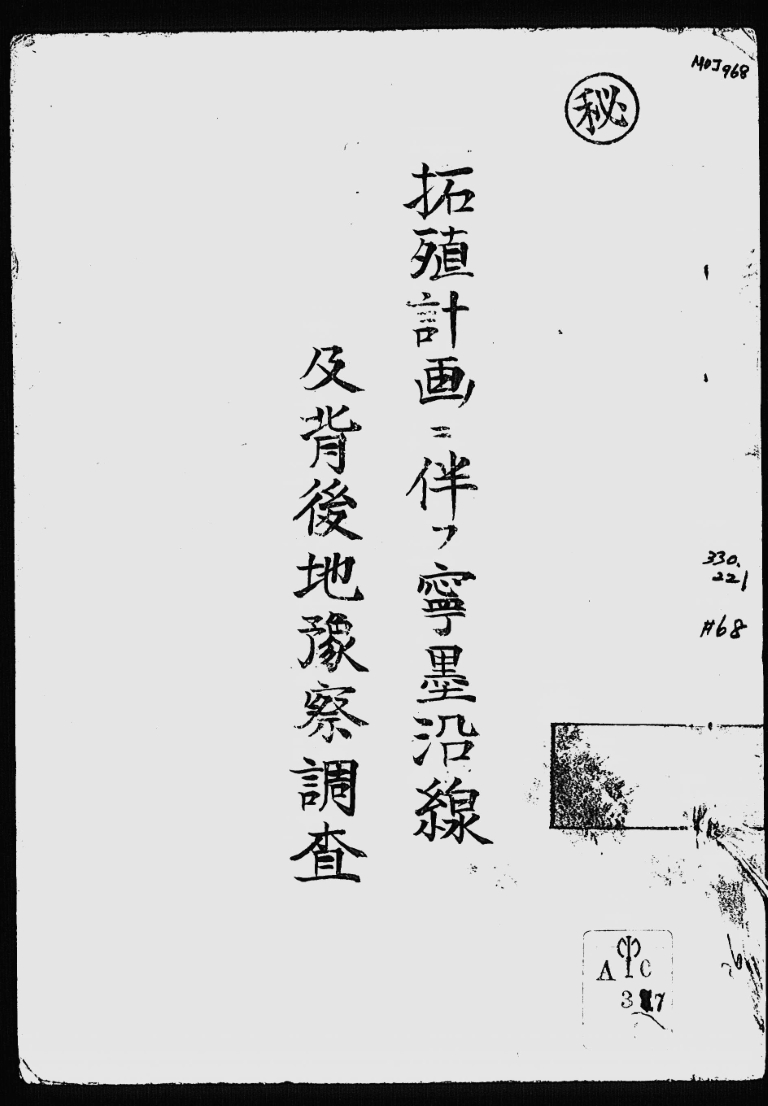 MOJ 968
秘
拓殖計画ニ伴フ寧墨沿線
及背後地豫察調査
330.
221
#68
A C
3 7